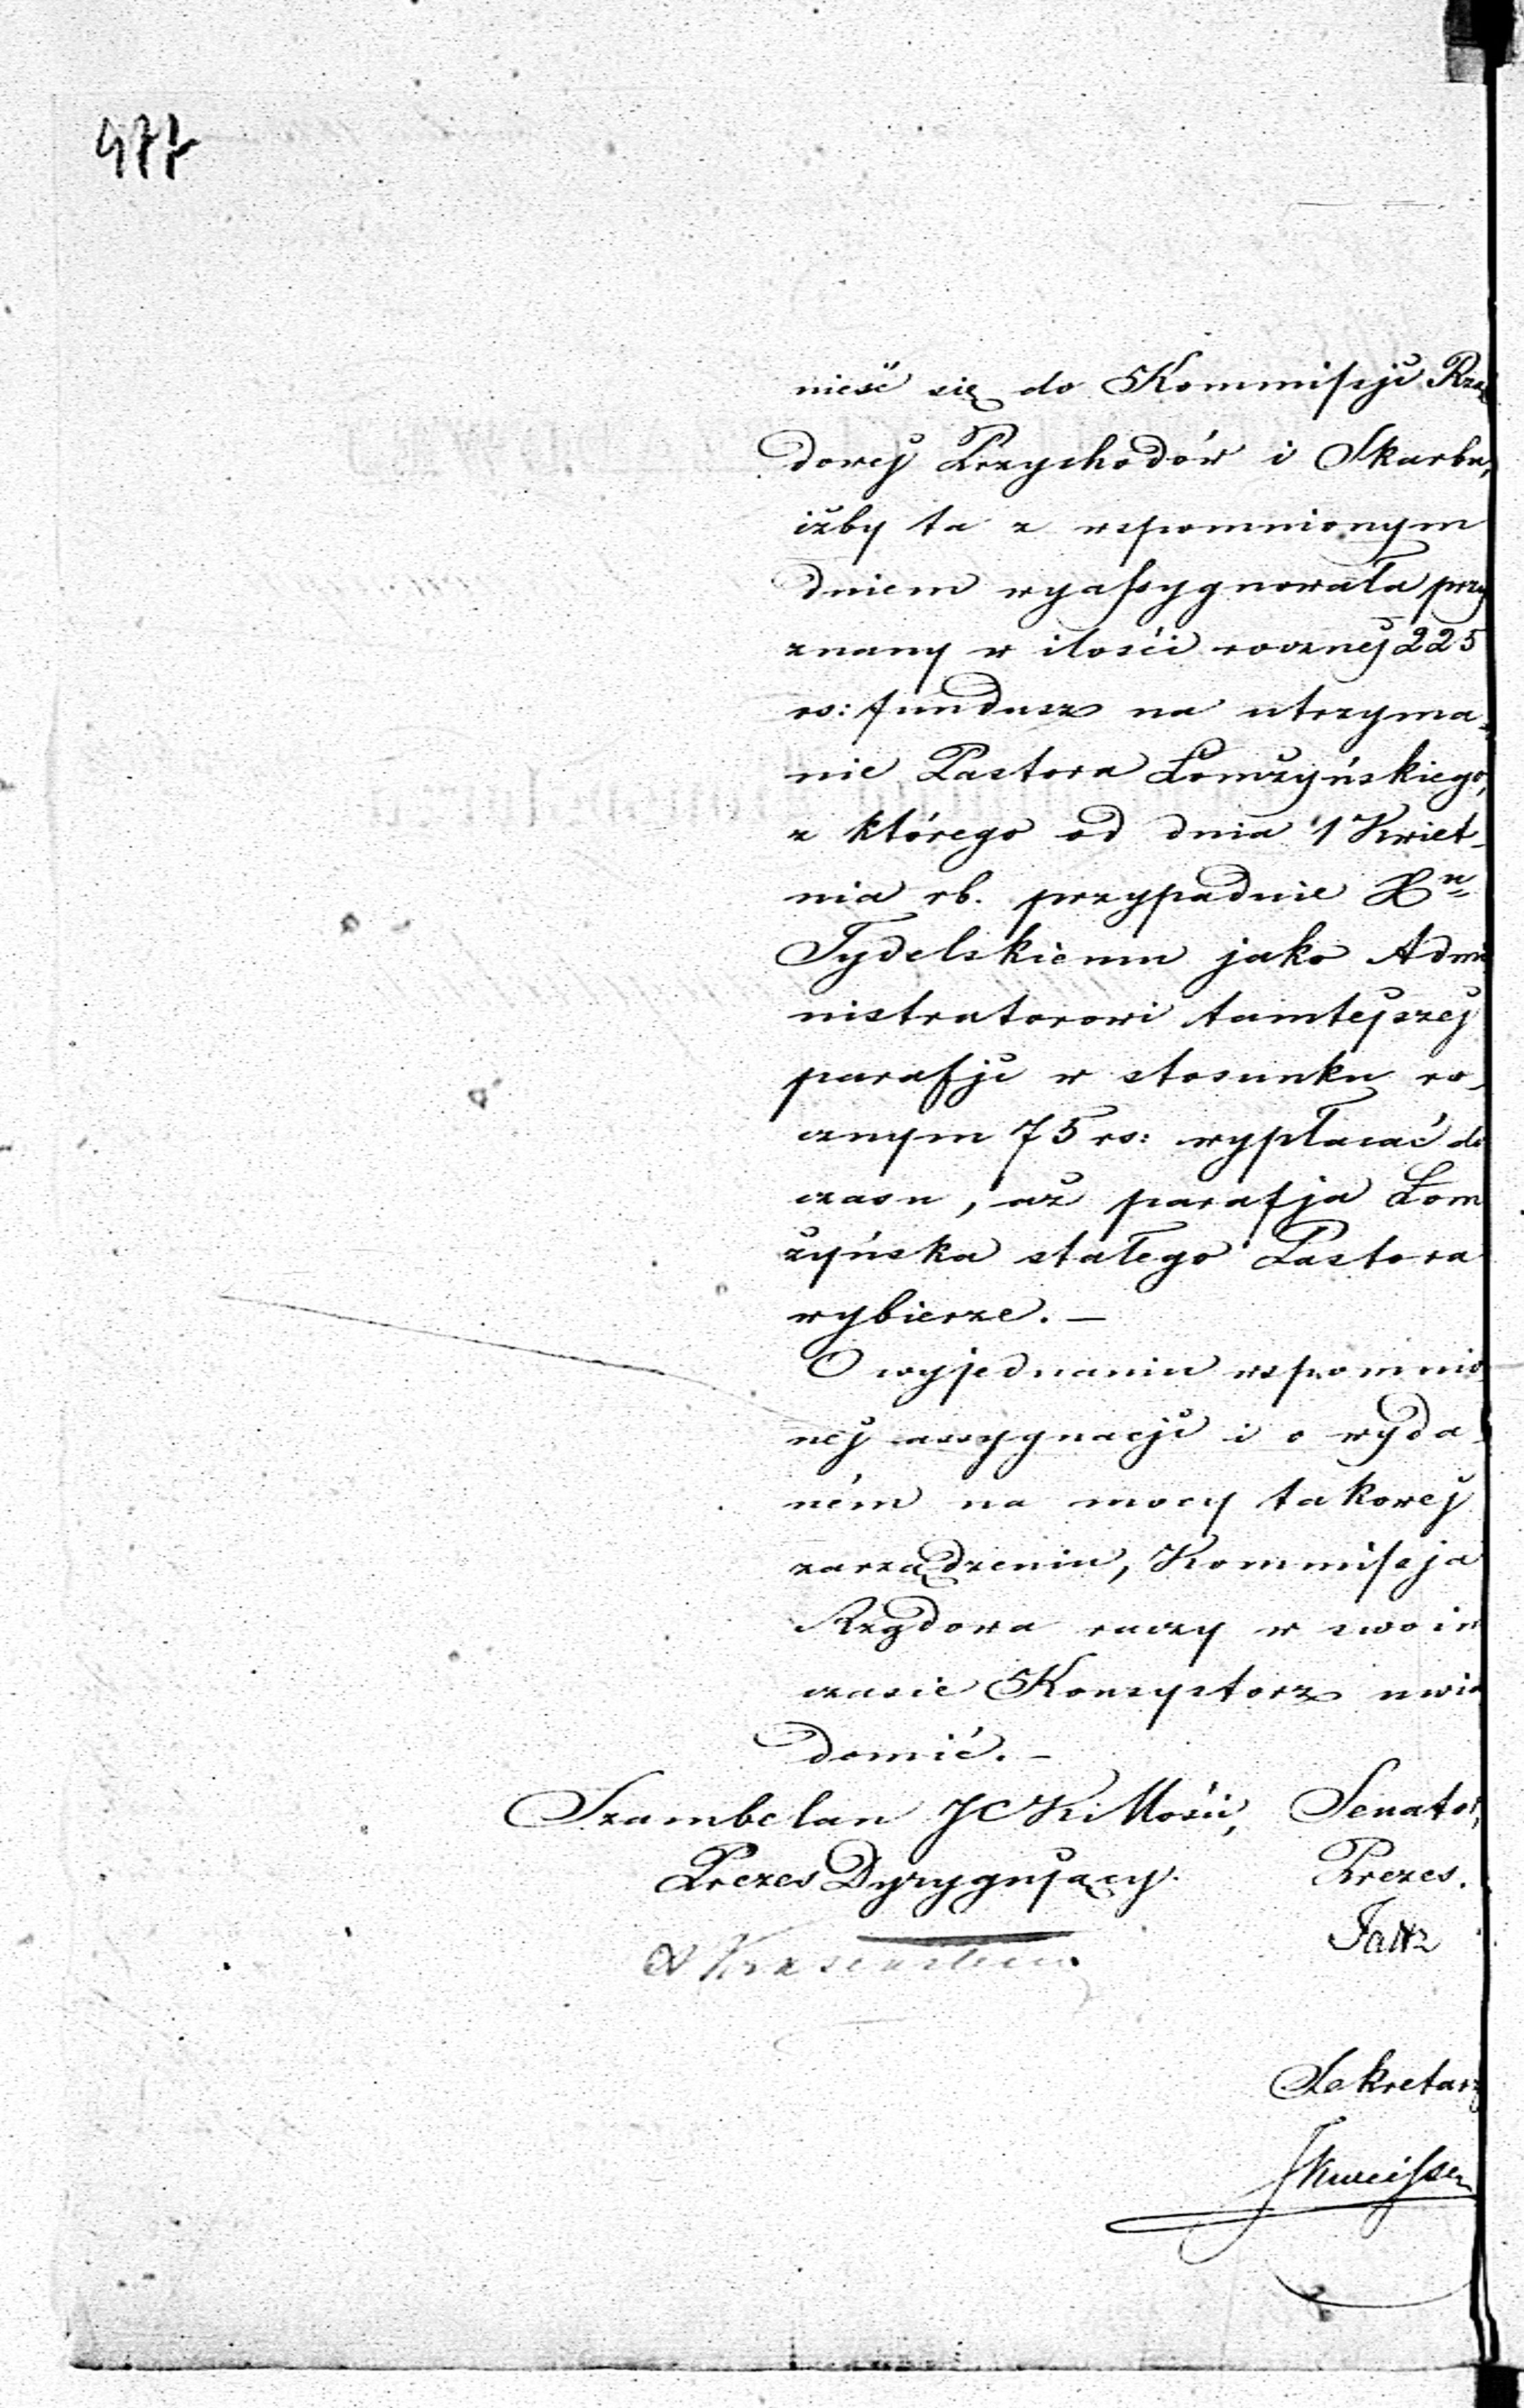 477
nieść się do Kommissji Rzą
dowej Przychodów i Skarbu,
iżby ta z wspomnionym
dniem wyassygnowała przy
znany w ilości rocznej 225
rs: fundusz na utrzyma-
nie Pastora Łomżyńskiego,
z którego od dnia 1 Kwiet-
nia rb. przypadnie Xu
Tydelskiemu jako Admi
nistratorowi tamtejszej
parafji w stosunku ro-
cznym 75 rs: wypłacać do
czasu, aż parafja Łom
żyńska stałego Pastora
wybierze. —
O wyjednaniu wspomnio
nej assygnacji i o wyda-
ném na mocy takowej
zarządzeniu, Kommissja
Rządowa raczy w swoim
czasie Konsystorz uwia
domić. —
Szambelan JCKMości, Senator,
Prezes Dyrygujący. Prezes.
Sekretarz